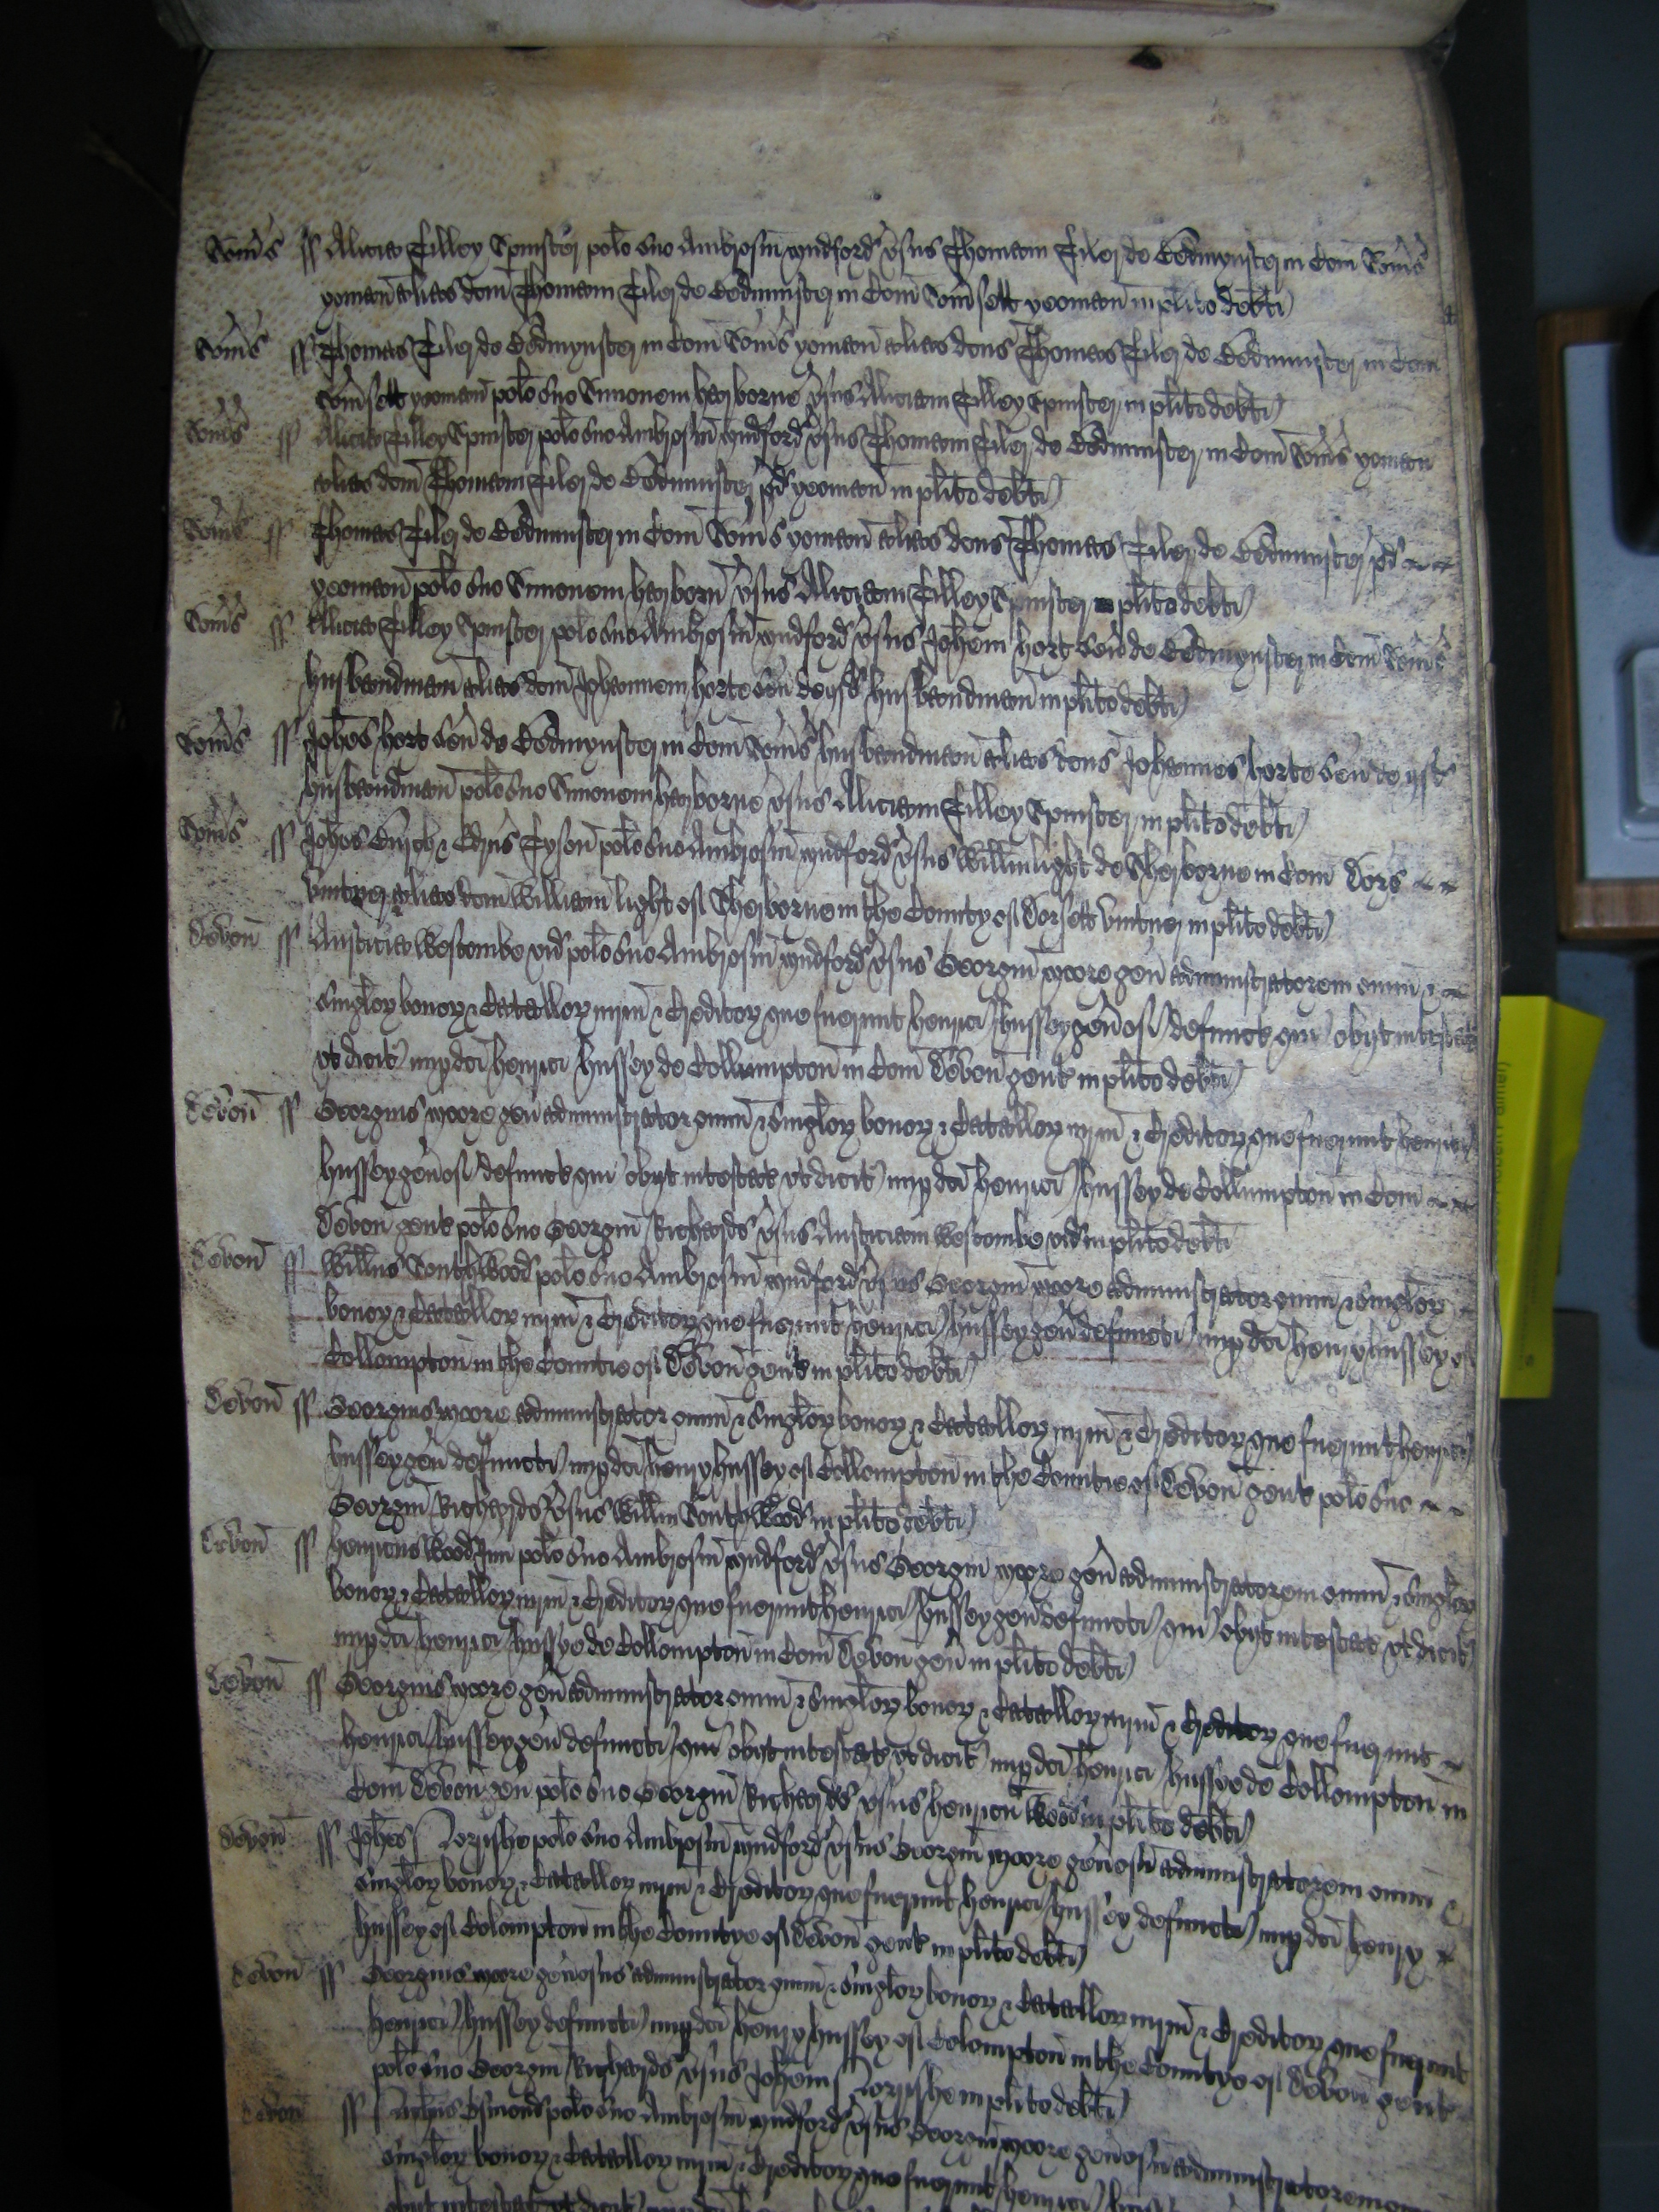 Som's ss Alicia Tilley Spinster po lo suo Ambrosiu Mudford v'sus Thomam Tiler de Bedmynster in Com Som's
yoman alias dcm Thomam Tiler de Bedminster in Com Som'sett yeoman in pl'ito deb'ti
Som's ss Thomas Tiler de Bedmynster in Com Som's yoman alias dcus Thomas Tiler de Bedminster in Com
Som'sett yeoman po lo suo Simonem Harborne v'sus Aliciam Tilley Spinster in pl'ito deb'ti
Som's ss Alicia Tilley Spinster po lo suo Ambrosiu Mudford v'sus Thomam Tiler de Bedminster in Com Som's yoman
alias dcm Thomam Tiler de Bedminster pd yeoman in pl'ito deb'ti
Som's ss Thomas Tiler de Bedminster in Com Som's yoman alias dcus Thomas Tiler de Bedminster pd
yeoman po lo suo Simonem Harborn v'sus Aliciam Tilley Spinster pl'ito deb'ti
Som's ss Alicia Tilley Spinster po lo suo Ambrosiu Mudford v'sus Joh'em Hort sen de Bedmynster in Com Som's
husbandman alias dcm Johannem Horte sen de husbandman in pl'ito deb'ti
Som's ss Joh'es Hort sen de Bedmynster in Com Som's husbandman alias dcus Johannes Horte sen de
husbandman po lo suo Simonem Harborne v'sus Aliciam Tilley Spinster in pl'ito deb'ti
Som's ss Joh'es & Tyson po lo suo Ambrosiu Mudford v'sus Will'm Light de Sherborne in Com Dors
vintner alias dcm William Light of Sherborne in the County of Dorsett vintner in pl'ito deb'ti
Devon ss Westcombe vid po lo suo Ambrosiu Mudford v'sus Georgiu Moore gen administratorem omm &
singlor bonor & Catallor iurium & Creditor que fuerunt Henrici Hussey gen'osi defunct qui obijt intestat
ut dicit nup dci Henrici Hussey de Collumpton in Com Devon gent in pl'ito deb'ti
Devon ss Georgius Moore gen administrator omm & singlor bonor & Catallor iurium & Creditor que fuerunt Henrici
Hussey gen'osi defunct qui obijt intestat ut dicit nup dci Henrici Hussey de Collumpton in Com
Devon gent po lo suo Georgiu Richards v'sus Westcombe vid in pl'ito deb'ti
Devon ss Will'us Southwood po lo suo Ambrosiu Mudford v'sus Georgiu Moore administrator omm & singlor
bonor & Catallor iurium & Creditor que fuerunt Henrici Hussey gen defuncti nup dci Henry Hussey of
Collompton in the Countie of Devon gent in pl'ito deb'ti
Devon ss Georgius Moore administrator omm & singlor bonor & Catallor iurium & Creditor que fuerunt Henrici
Hussey gen defuncti nup dci Henry Hussey of Collompton in the Countie of Devon gent po lo suo
Georgiu Richards v'sus Will'm Southwood in pl'ito deb'ti
Devon ss Henricus Wood po lo suo Ambrosiu Mudford v'sus Georgiu Moore gen administratorem omm & singlor
bonor & Catallor iurium & Creditor que fuerunt Henrici Hussey gen defuncti qui obijt intestat ut dicit
nup dci Henrici Hussye de Collompton in Com Devon gen in pl'ito deb'ti
Devon ss Georgius Moore gen administrator omm & singlor bonor & Catallor iurium & Creditor que fuerunt
Henrici Hussey gen defuncti qui obijt intestat ut dicit nup dci Henrici Hussye de Collompton in
Com Devon gen po lo suo Georgiu Richards v'sus Henricu Wood in pl'ito deb'ti
Devon ss Joh'es po lo suo Ambrosiu Mudford v'sus Georgiu Moore gen'osu administratorem omm &
singlor bonor & Catallor iurium & Creditor que fuerunt Henrici Hussey defuncti nup dci Henry
Hussey of Colompton in the Countye of Devon gent in pl'ito deb'ti
Devon ss Georgius Moore gen'osus administrator omm & singlor bonor & Catallor iurium & Creditor que fuerunt
Henrici Hussey defuncti nup dci Henry Hussey of Colompton in the Countye of Devon gent
po lo suo Georgiu Richards v'sus Joh'em in pl'ito deb'ti
Devon ss Esmond po lo suo Ambrosiu Mudford v'sus Georgiu Moore gen'osu administratorem
singlor bonor & Catallor iurium & Creditor que fuerunt Henrici
obijt intestat ut dicit